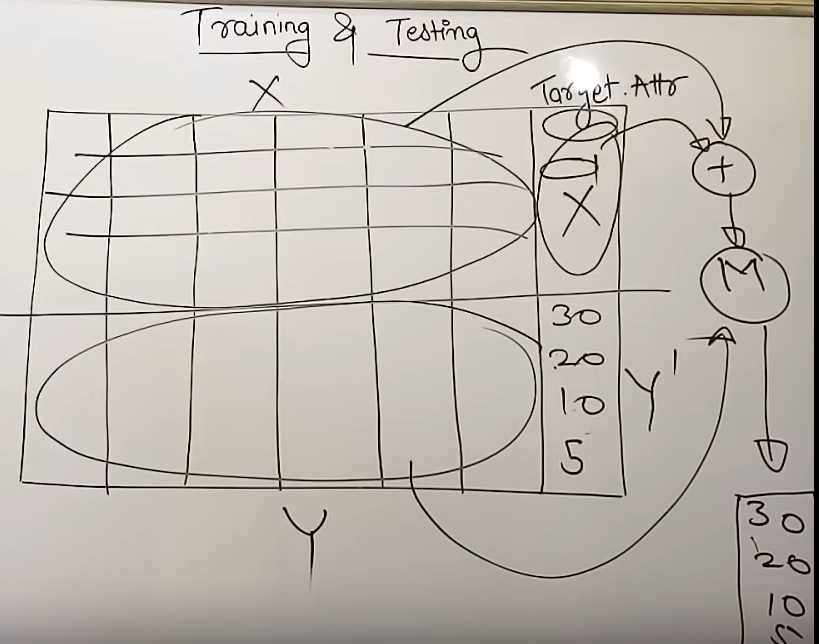 Training & Testing
X
Target. Attr
+
X
M
30
20
10
5
Y'
Y
30
20
10
5